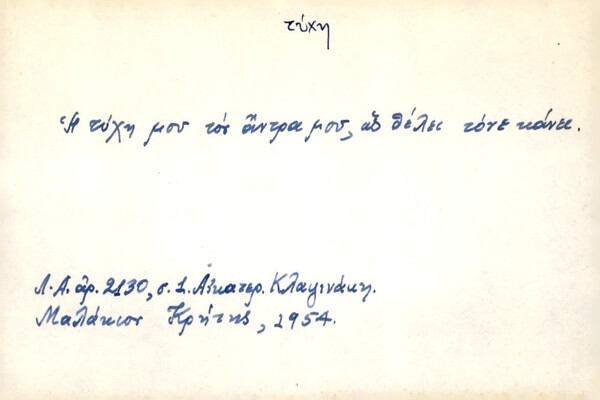 τύχη
Ἡ τύχη μου τὸν ἄντρα μου, ὡς θέλει τόνε κάνει.
Λ.Α. ἀρ. 2130, σ. 1. Αἰκατερ. Κλαψινάκη.
Μαλάκιον Κρήτης, 1954.